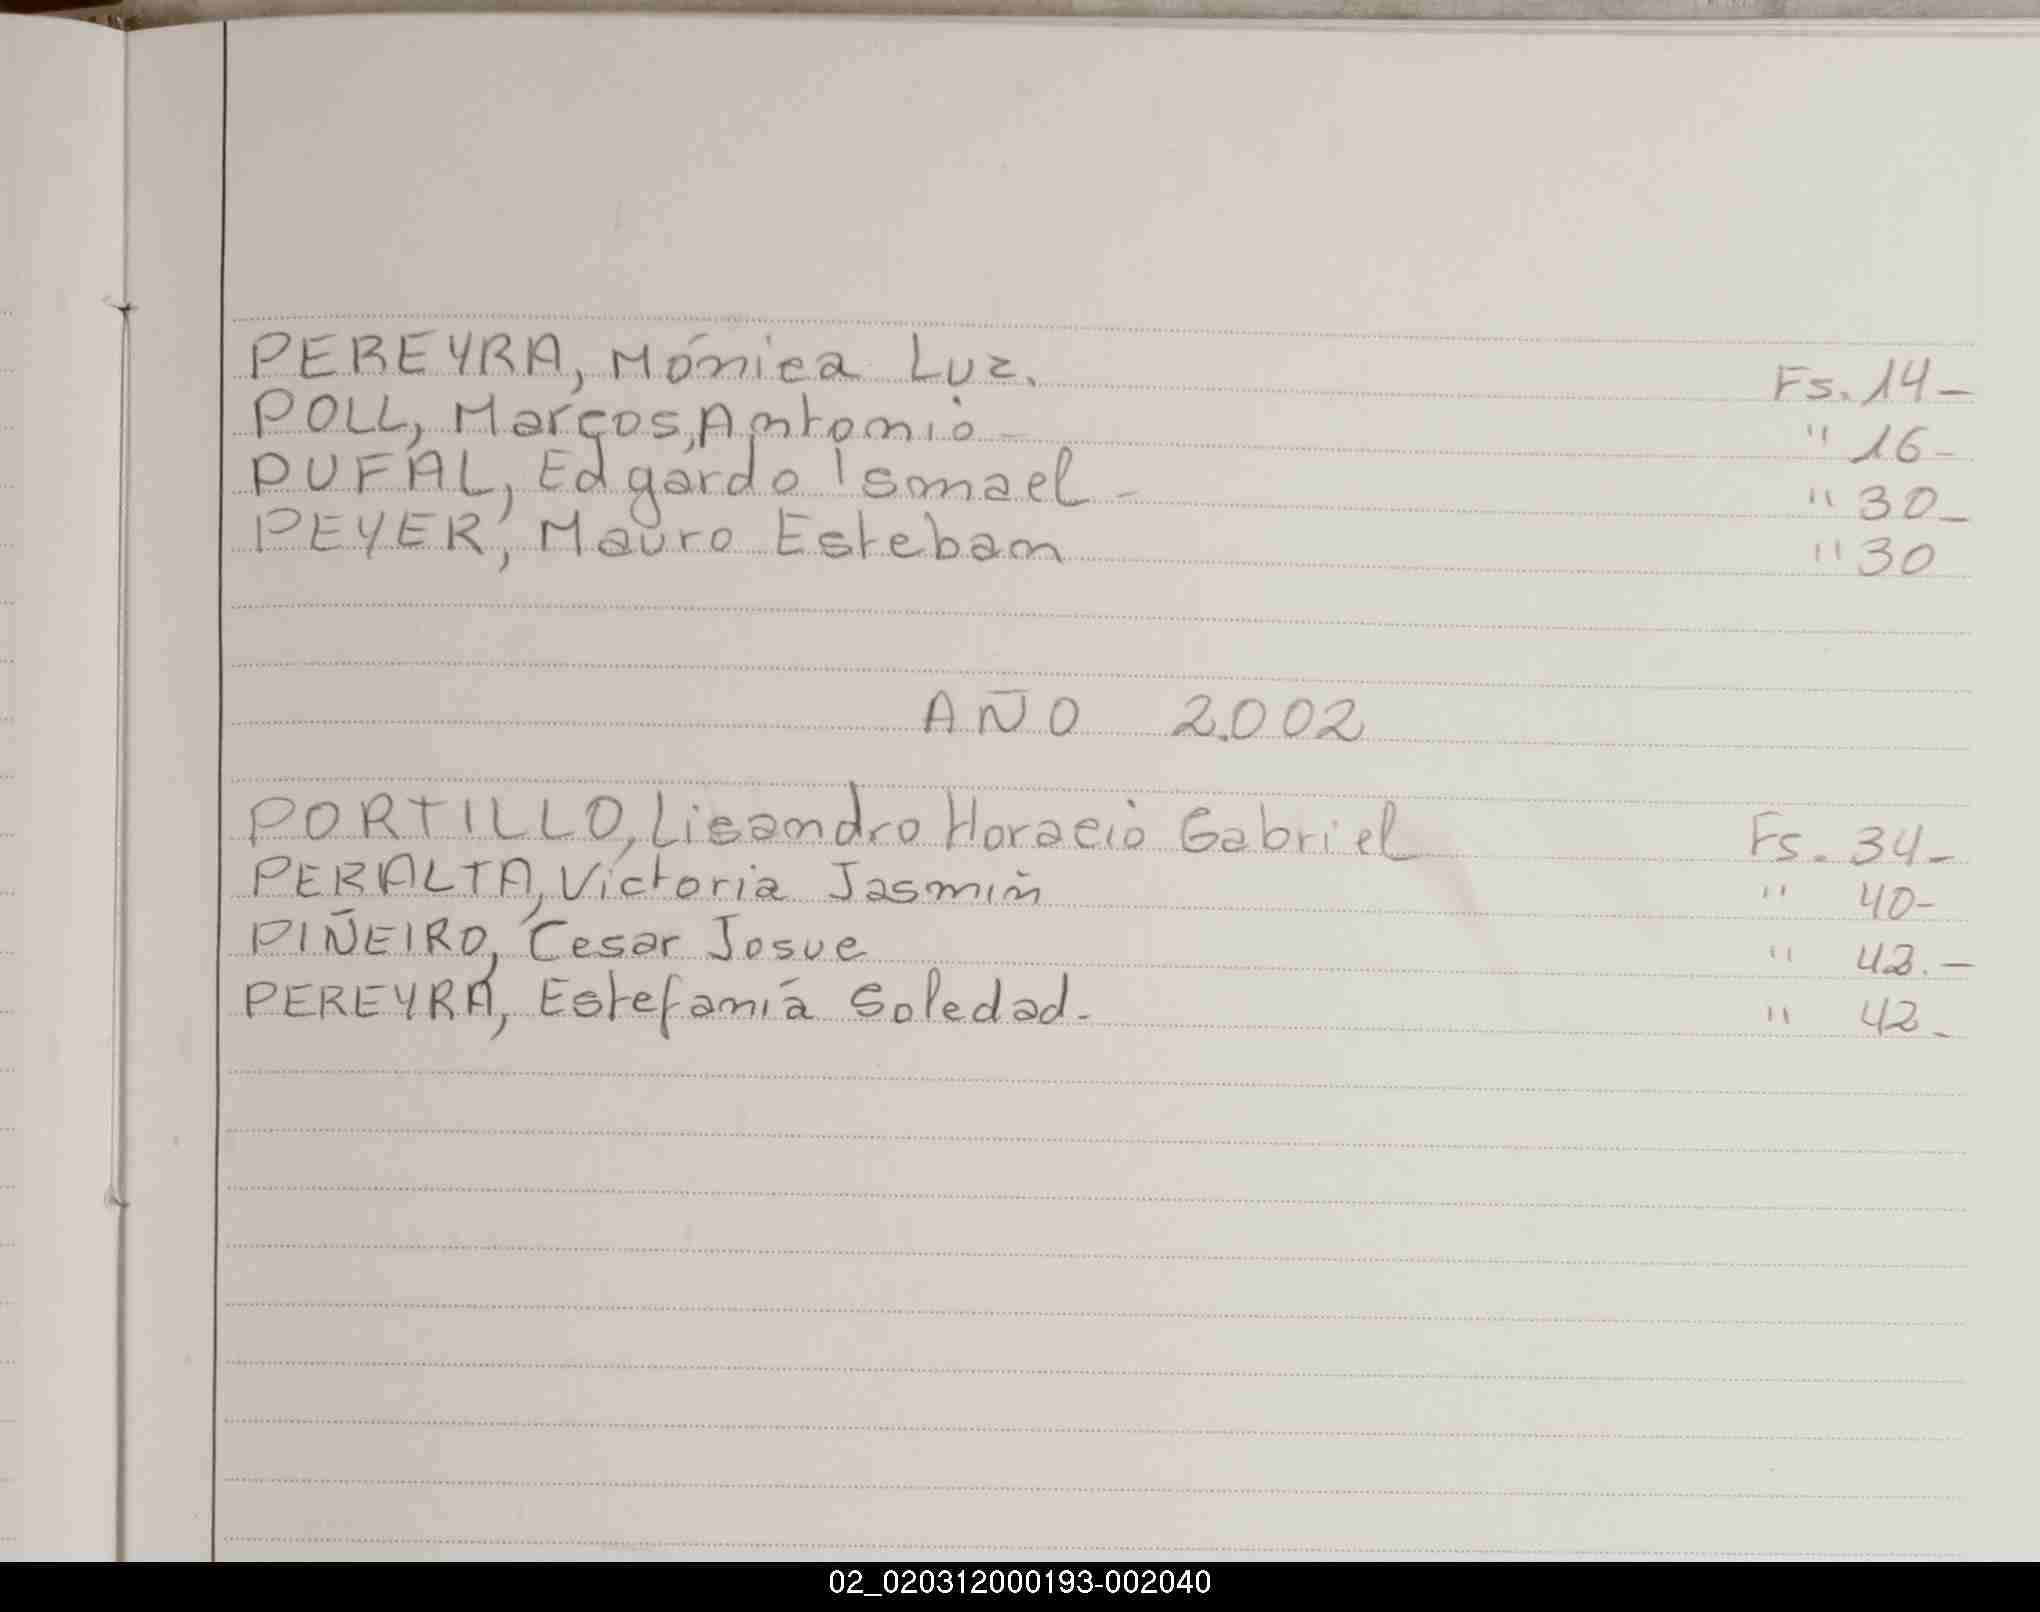 PEREYRA, Mónica Luz. Fs. 14-
POLL, Marcos, Antonio - " 16-
PUFAL, Edgardo Ismael - " 30-
PEYER, Mauro Esteban " 30
AÑO 2.002
PORTILLO, Lisandro Horacio Gabriel Fs. 34-
PERALTA, Victoria Jasmin " 40-
PIÑEIRO, Cesar Josue " 42.-
PEREYRA, Estefanía Soledad. " 42-
02_020312000193-002040